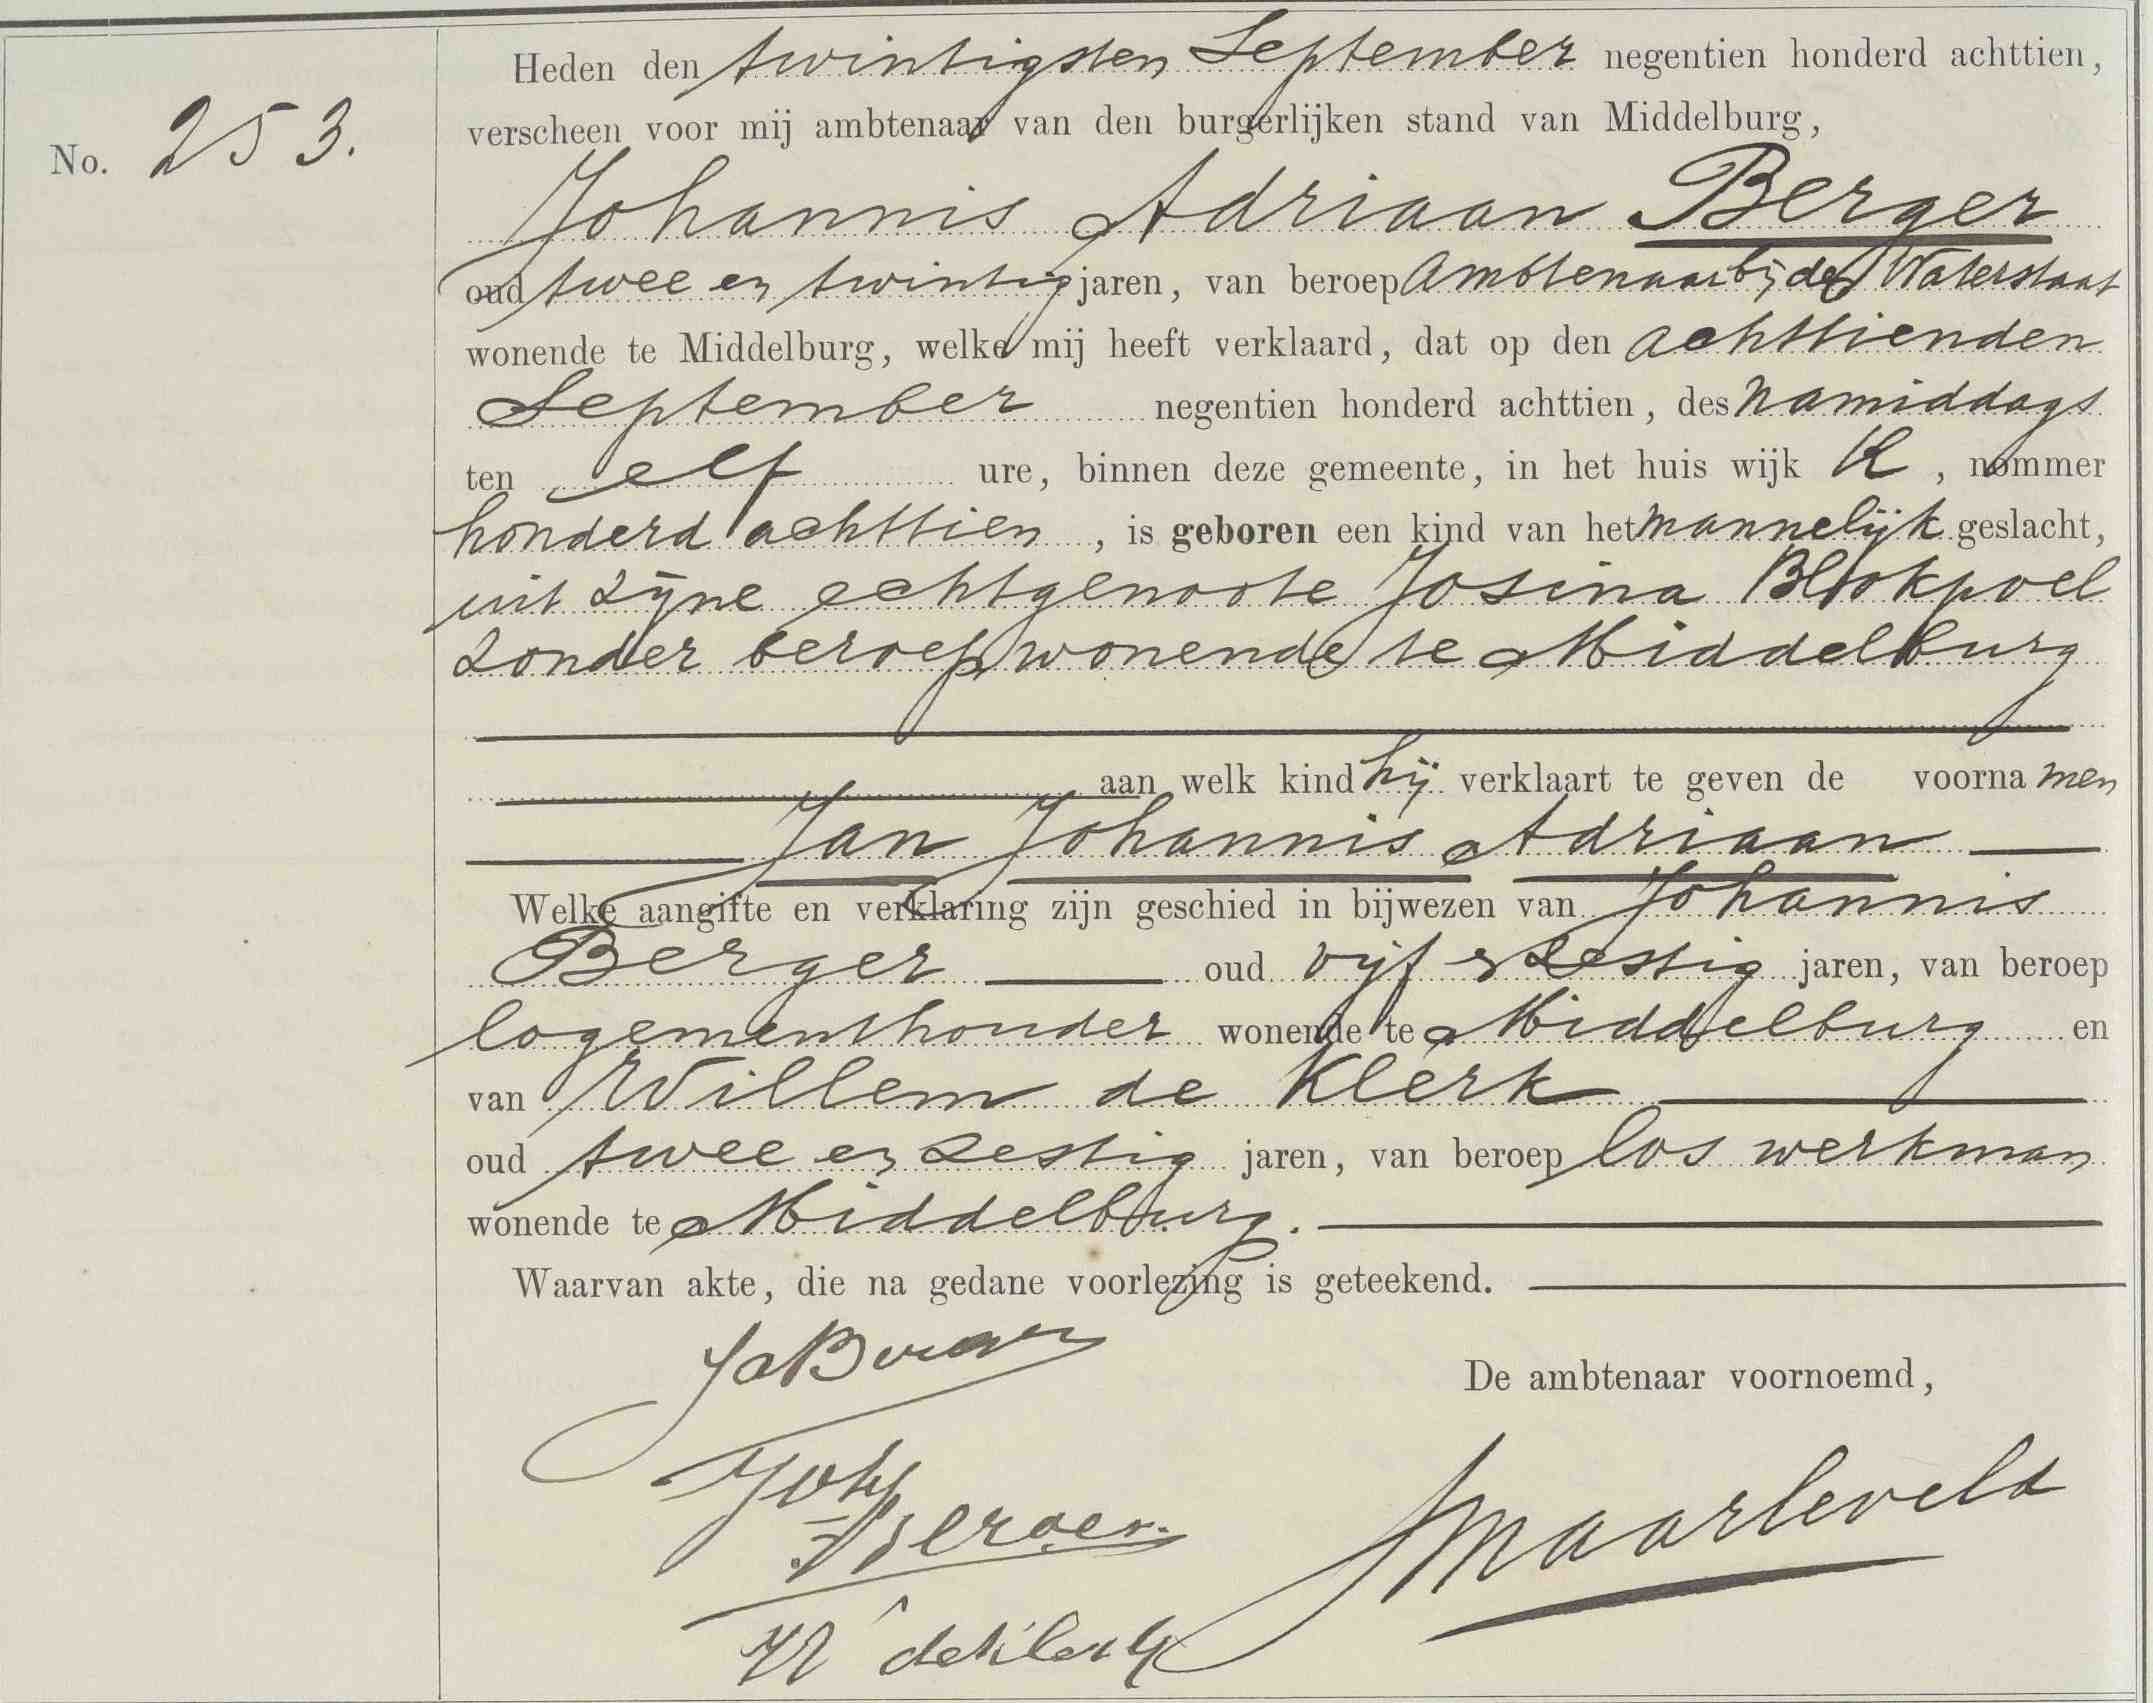 No. 253.
Heden den twintigsten September negentien honderd achttien,
verscheen voor mij ambtenaar van den burgerlijken stand van Middelburg,
Johannis Adriaan Berger
oud twee en twintig jaren, van beroep Ambtenaar bij den Waterstaat
wonende te Middelburg, welke mij heeft verklaard, dat op den achttienden
September negentien honderd achttien, des namiddags
ten elf ure, binnen deze gemeente, in het huis wijk K, nommer
honderd achttien, is geboren een kind van het mannelijk geslacht,
uit zijne echtgenoote Josina Blookpoel
zonder beroep wonende te Middelburg
aan welk kind hij verklaart te geven de voornamen
Jan Johannis Adriaan
Welke aangifte en verklaring zijn geschied in bijwezen van Johannis
Berger oud vijf en zestig jaren, van beroep
logementhouder wonende te Middelburg en
van Willem de Klerk
oud twee en zestig jaren, van beroep los werkman
wonende te Middelburg.
Waarvan akte, die na gedane voorlezing is geteekend.
JaBerger
De ambtenaar voornoemd,
Joh Berger.
Maarleveld
W de Klerk